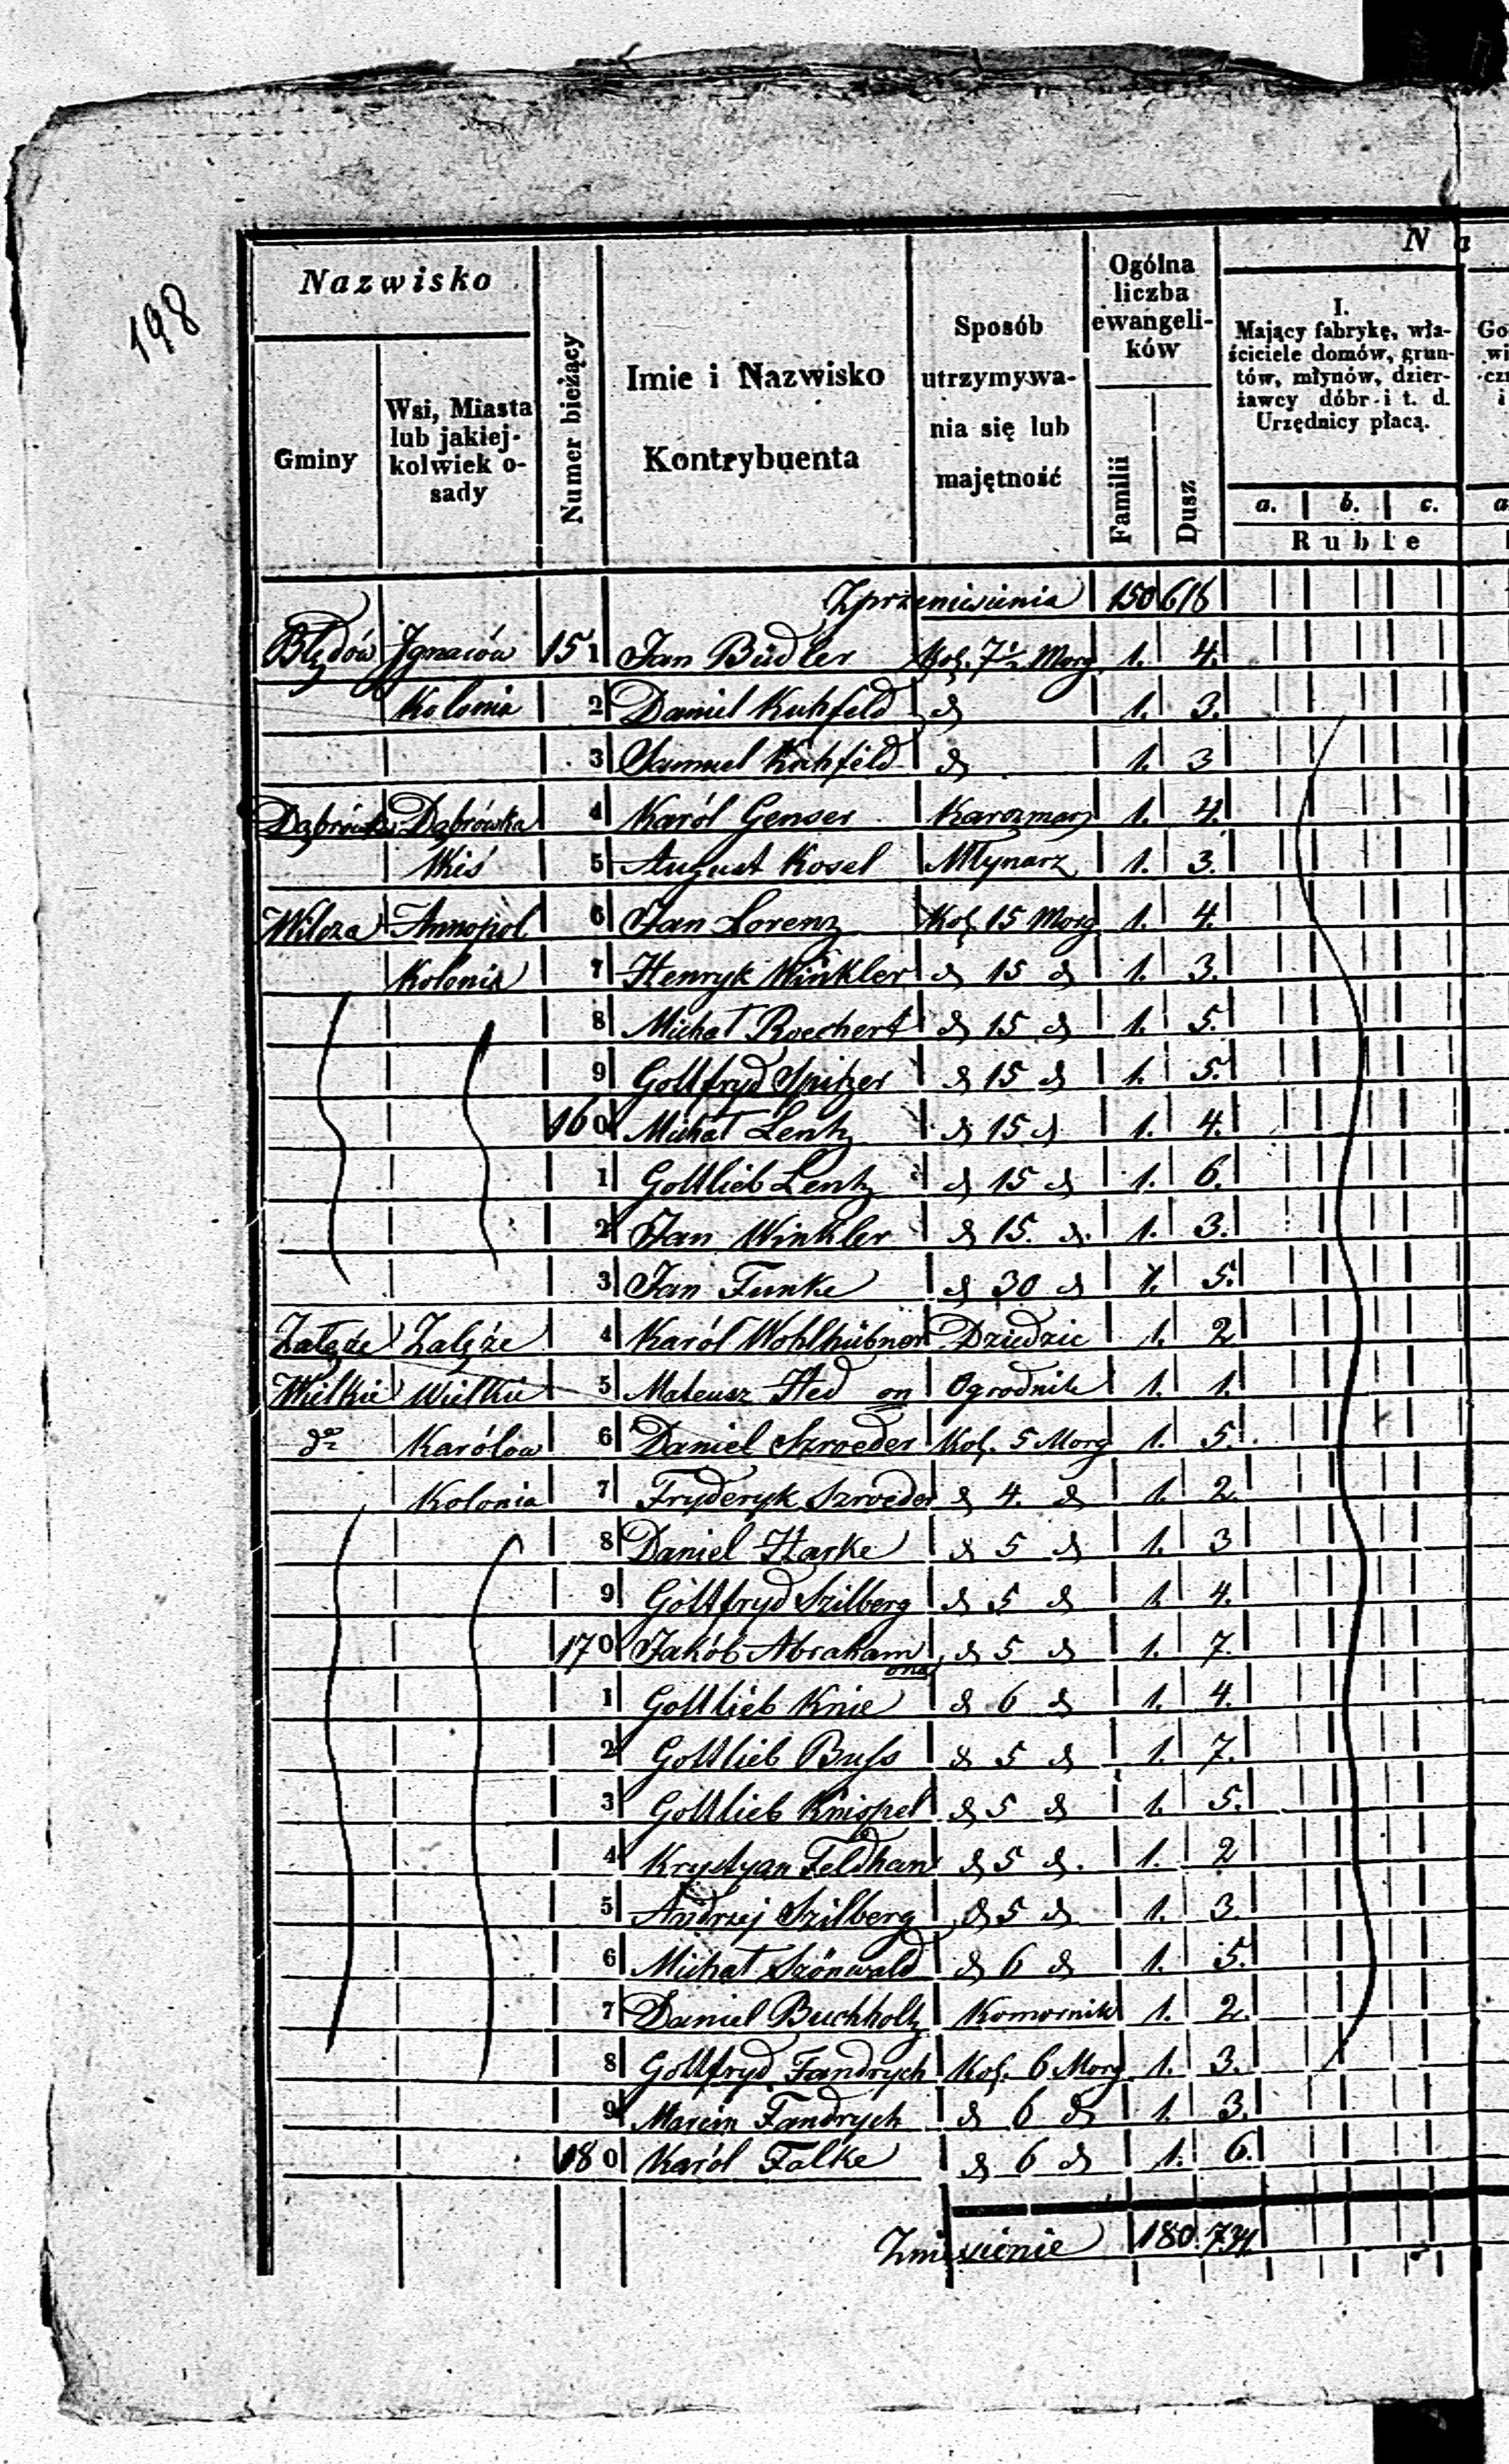 198
Nazwisko
Gminy
Wsi, Miasta lub jakiej-kolwiek o-sady
Numer bieżący
Imie i Nazwisko Kontrybuenta
Sposób utrzymywa-nia się lub majętność
Ogólna liczba ewangeli-ków
Familii
Dusz
N a
I.
Mający fabrykę, wła-
ściciele domów, grun-
tów, młynów, dzier-
żawcy dóbr i t. d.
Urzędnicy płacą.
a. b. c.
Ruble
Zprzeniesienia 150 618
Błędów Ignaców 151 Jan Büdler Kol. 7½ Morg 1. 4.
Kolonia 2 Daniel Kuhfeld d 1. 3.
3 Samuel Kuhfeld d 1. 3
Dąbrówka Dąbrówka 4 Karól Genser Karczmarz 1. 4.
Wieś 5 August Kosel Młynarz 1. 3.
Wilcza Annopol 6 Jan Lorenz Kol. 15 Morg 1. 4.
Kolonia 7 Henryk Winkler d 15 d 1. 3.
8 Michał Roechert d 15 d 1. 5.
9 Gottfryd Spitzer d 15 d 1. 5.
160 Michał Lentz d 15 d 1. 4.
1 Gottlieb Lentz d 15 d 1. 6.
2 Jan Winkler d 15. d. 1. 3.
3 Jan Funke d 30 d 1. 5.
Załęże Załęże 4 Karól Wohlhübner Dziedzic 1. 2
Wielkie Wielkie 5 Mateusz Hed on Ogrodnik 1. 1.
do Karólow 6 Daniel Szroeder Kol. 5 Morg 1. 5.
Kolonia 7 Fryderyk Szroeder d 4. d 1. 2.
8 Daniel Harke d 5 d 1. 3
9 Gottfryd Szilberg d 5 d 1. 4.
170 Jakób Abraham d 5 d 1. 7.
1 Gottlieb Knie ona d 6 d 1. 4.
2 Gottlieb Buss d 5 d 1. 7.
3 Gottlieb Kniopel d 5 d 1. 5.
4 Krystyan Feldhan d 5 d. 1. 2
5 Andrzej Szilberg d 5 d 1. 3.
6 Michał Szönwald d 6 d 1. 5.
7 Daniel Buchholtz Komornik 1. 2.
8 Gottfryd Fandrych Kol. 6 Morg 1. 3.
9 Marcin Fandrych d 6 d 1. 3.
180 Karól Falke d 6 d 1. 6.
Zniesienie 180. 734